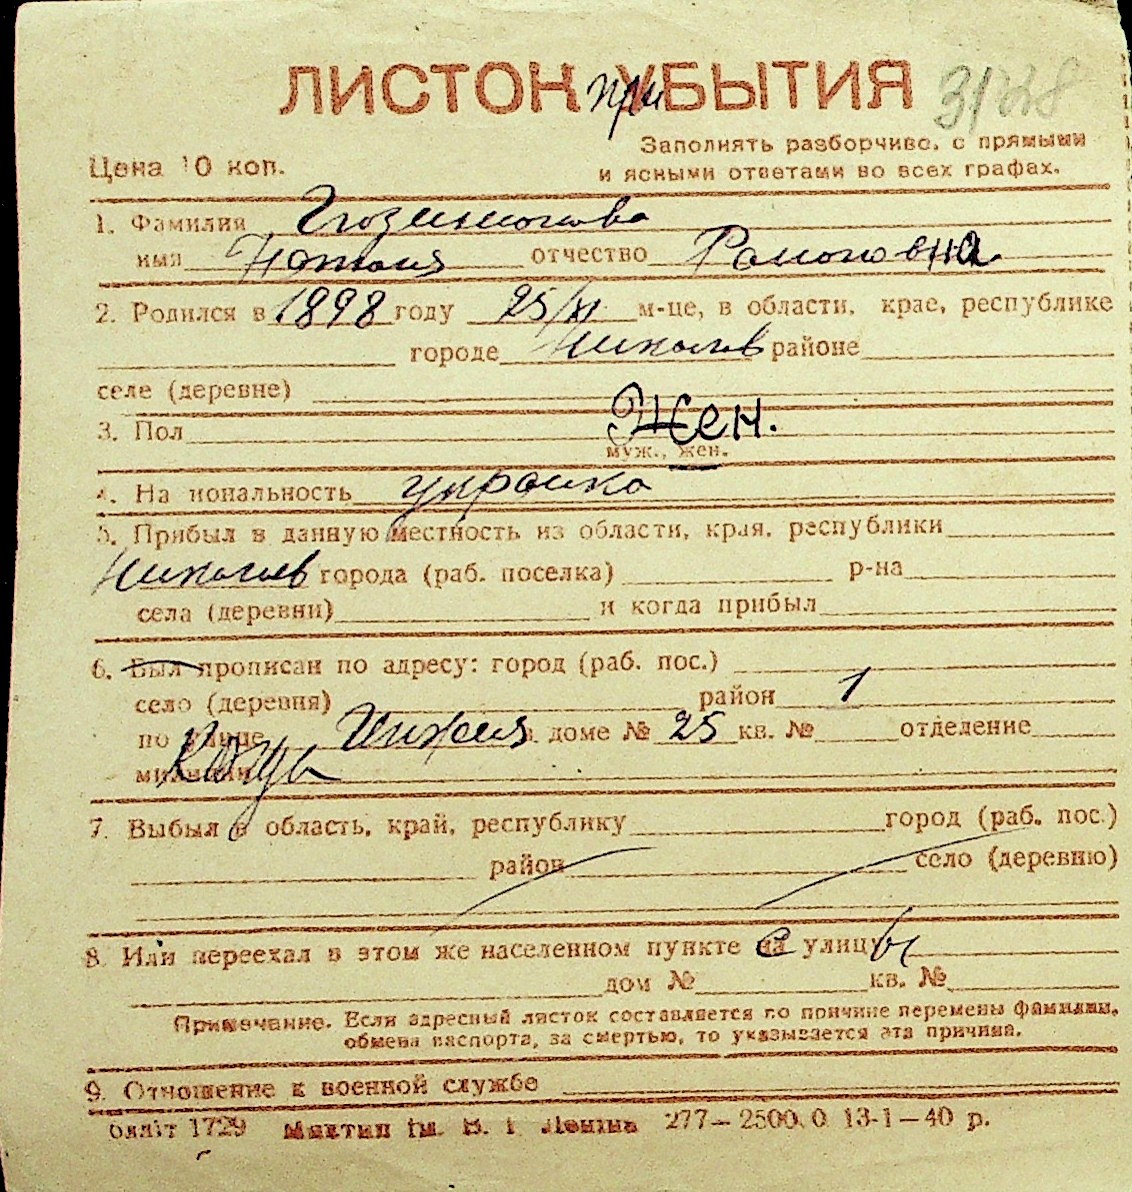 ЛИСТОК при УБЫТИЯ
Цена 10 коп.
Заполнять разборчиво, с прямыми
и ясными ответами во всех графах.
1. Фамилия
имя Наталия отчество Романовна
2. Родился в 1898 году 25/XI м-це, в области, крае, республике
городе Николаев районе
селе (деревне)
3. Пол Жен.
муж., жен.
4. Национальность украинка
5. Прибыл в данную местность из области, края, республики
Николаев города (раб. поселка) р-на
села (деревни) и когда прибыл
6. Был прописан по адресу: город (раб. пос.)
село (деревня) район 1
по улице Нижняя в доме № 25 кв. № отделение
милиции
7. Выбыл в область, край, республику город (раб. пос.)
район село (деревню)
8. Или переехал в этом же населенном пункте с улицы
дом № кв. №
Примечание. Если адресный листок составляется по причине перемены фамилии,
обмена паспорта, за смертью, то указывается эта причина.
9. Отношение к военной службе
1729 ім. В. І. Леніна 277—2500.0 13-1—40 р.